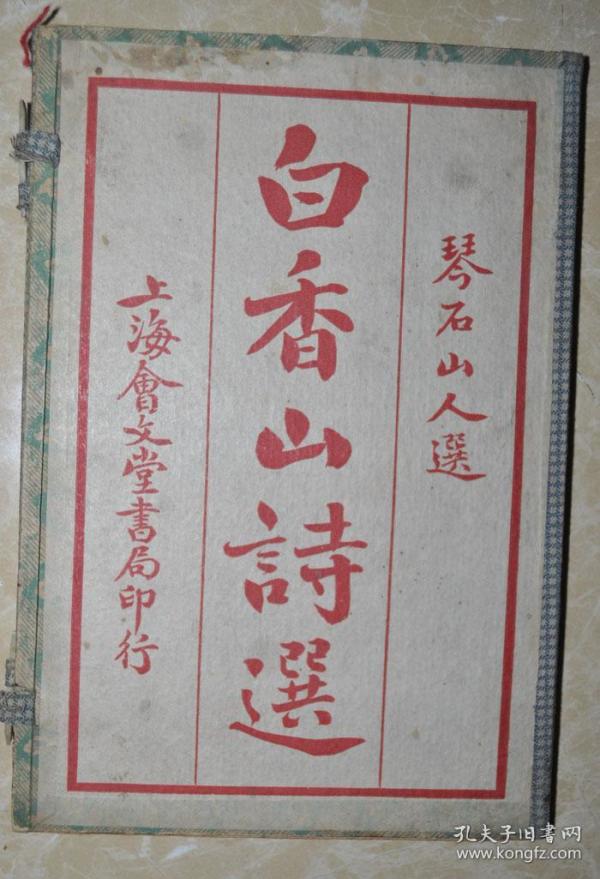 琴石山人選
白香山詩選
上海會文堂書局印行
孔夫子旧书网
www.kongfz.com